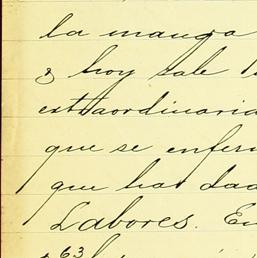 la manga
y hoy sale
extraordinaria
que se enfer
que has dad
Labores. En
63